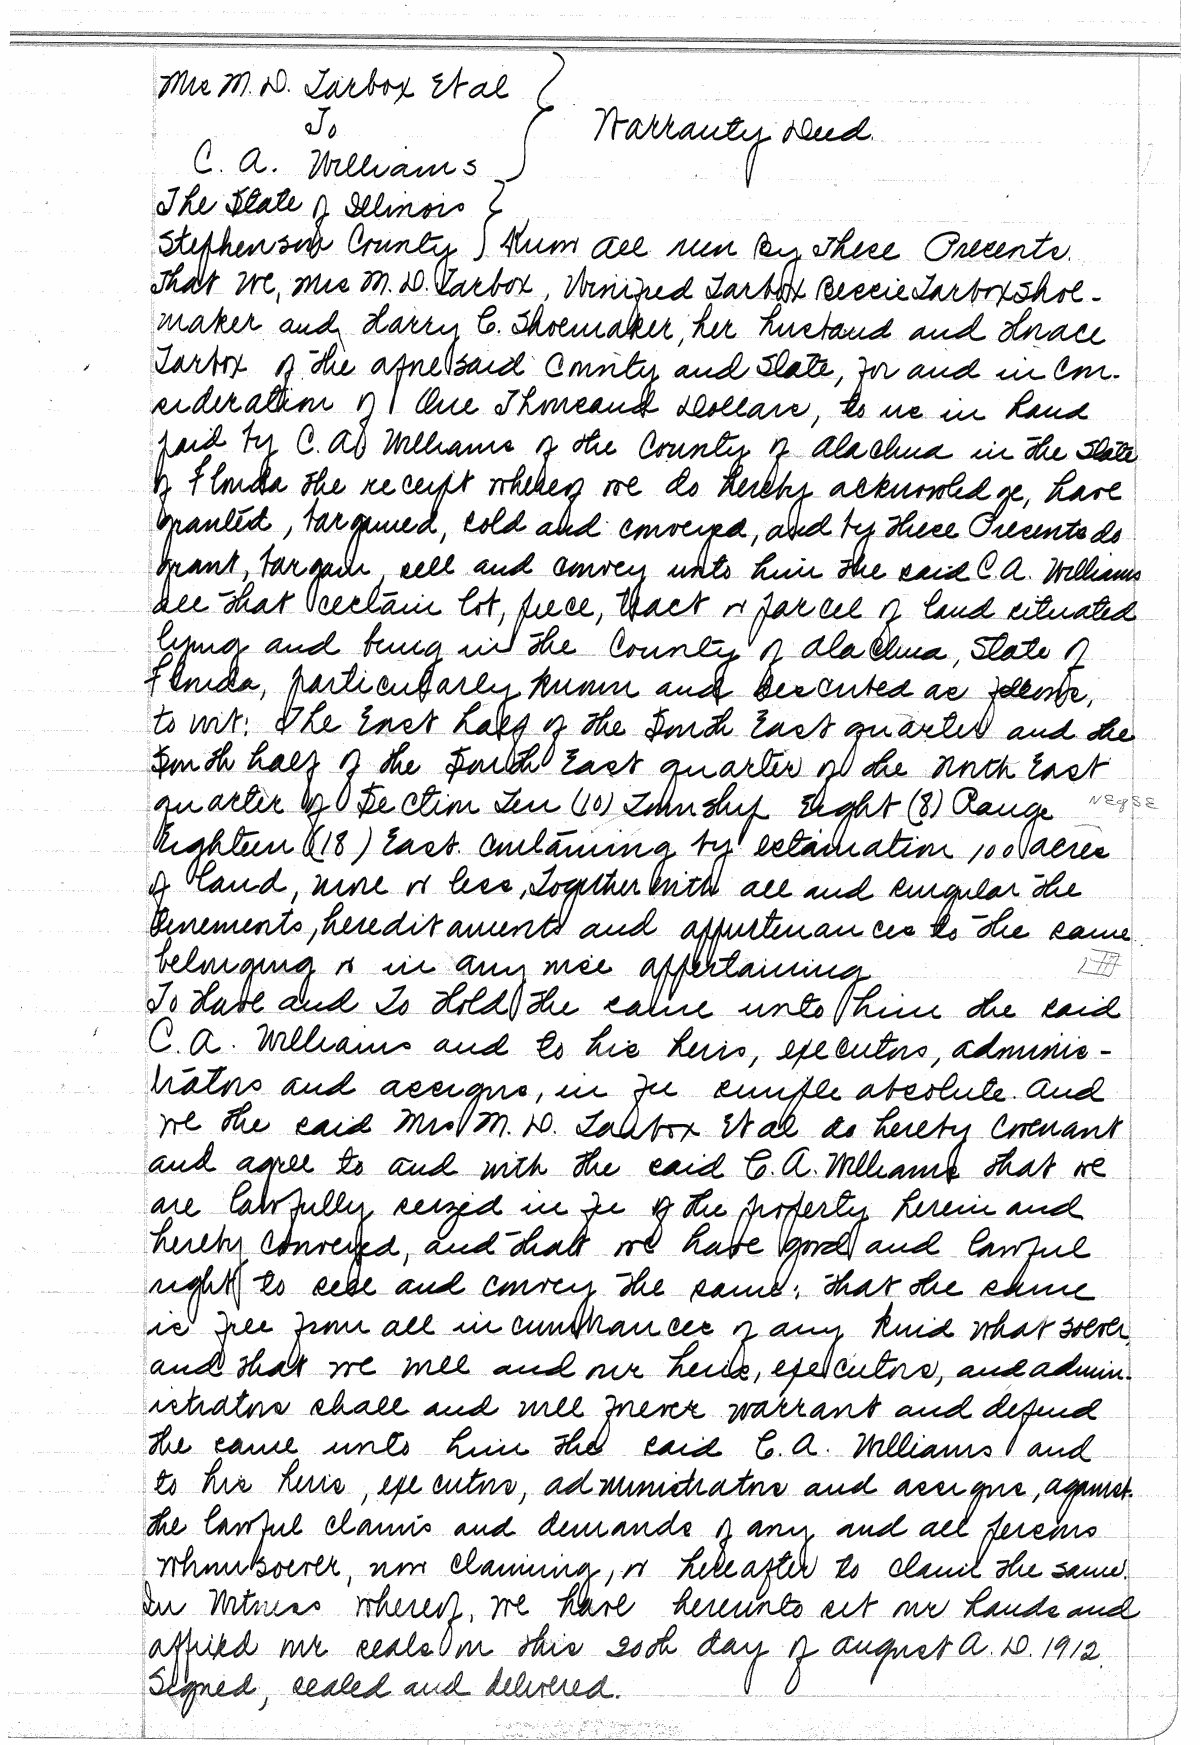 Mrs M. D. Tarbox Et al
To
Warranty Deed.
C. A. Williams
The State of Illinois
Stephenson County Know All men By These Presents.
That We, Mrs M. D. Tarbox, Winifred Tarbox Bessie Tarbox Shoe-
maker and Harry C. Shoemaker, her husband and Horace
Tarbox of the aforesaid County and State, for and in con-
sideration of One Thousand Dollars, to us in hand
paid by C. A. Williams of the County of Alachua in the State
of Florida the receipt whereof we do hereby acknowledge, have
granted, bargained, sold and conveyed, and by these Presents do
grant, bargain, sell and convey unto him the said C. A. Williams
all that certain lot, piece, tract or parcel of land situated
lying and being in the County of Alachua, State of
Florida, particularly known and described as follows,
to wit: The East half of the South East quarter and the
South half of the South East quarter of the North East
quarter of Section Ten (10) Township Eight (8) Range NE of SE
Eighteen (18) East. containing by estimation 100 acres
of land, more or less, Together with all and singular the
tenements, hereditaments and appurtenances to the same
belonging or in any wise appertaining
To Have and To Hold the same unto him the said
C. A. Williams and to his heirs, executors, adminis-
trators and assigns, in fee simple absolute. And
we the said Mrs M. D. Tarbox Et al do hereby covenant
and agree to and with the said C. A. Williams that we
are lawfully seized in fee of the property herein and
hereby conveyed, and that we have good and lawful
right to sell and convey the same; that the same
is free from all incumbrances of any kind what soever,
and that we will and our heirs, executors, and admin-
istrators shall and will forever warrant and defend
the same unto him the said C. A. Williams and
to his heirs, executors, administrators and assigns, against
the lawful claims and demands of any and all persons
whomsoever, now claiming, or hereafter to claim the same.
In Witness whereof, we have hereunto set our hands and
affixed our seals on this 20th day of August A. D. 1912.
Signed, sealed and delivered.